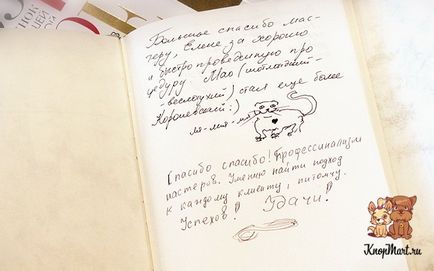 Большое спасибо мас-
теру, Елене за хорошо
и быстро проведенную про
цедуру. Мао (шотландий-
-веслоухий) стал еще более
Королевский :)
Спасибо спасибо! Профессионализм
мастеров. Умению найти подход
к каждому клиенту, питомцу.
Успехов! Удачи!
KnopMart.ru